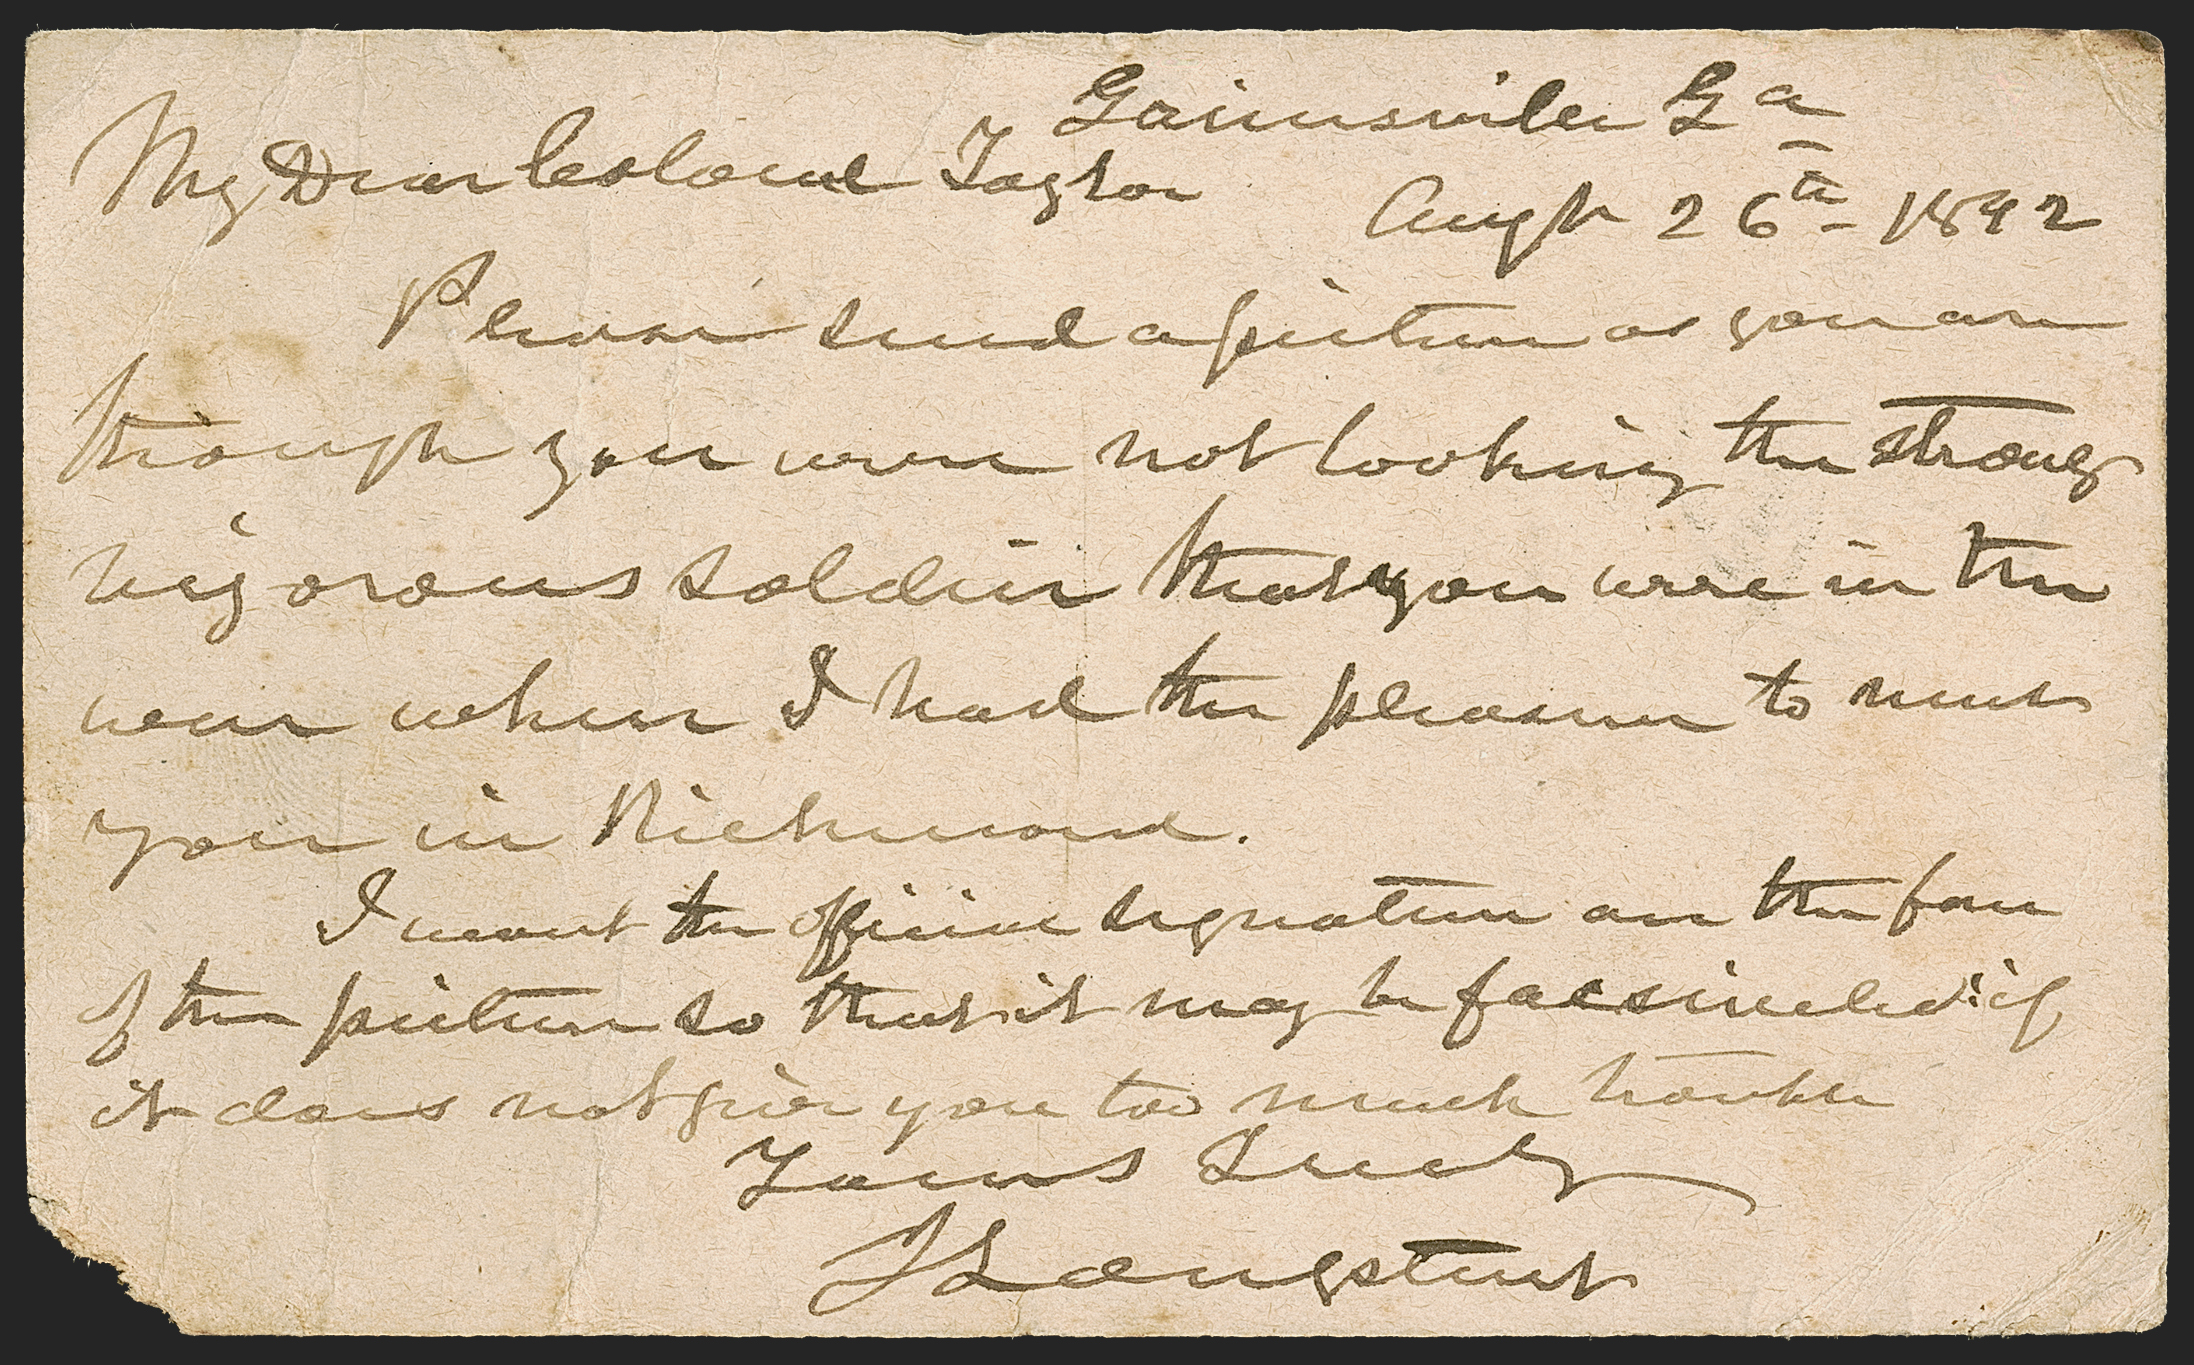 Gainesville Ga
My Dear Colonel Taylor
Augt 26th 1892
Please send a picture as you are
though you were not looking the strong
vigorous soldier that you were in the
war when I had the pleasure to meet
you in Richmond.
I want the official signature on the face
of the picture so that it may be facsimiled: if
it does not give you too much trouble
Yours Truly
J Longstreet